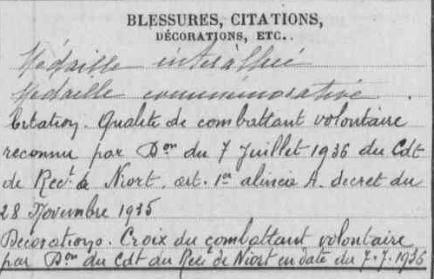 BLESSURES, CITATIONS,
DÉCORATIONS, ETC..
Médaille interalliée
Médaille commémorative.
Citation. Qualité de combattant volontaire
reconnu par Don du 7 Juillet 1936 du Cdt
de Rect à Niort. art. 1er alinéa A. decret du
28 Novembre 1935
Decorations. Croix du combattant volontaire
par Don du Cdt du Rec de Niort en date du 7.7.1936